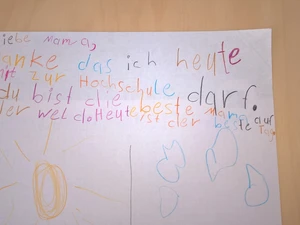 iebe Mama,
anke das ich heute
mit zur Hochschule darf.
du bist die beste Mama auf
der welt. Heute ist der beste Tag